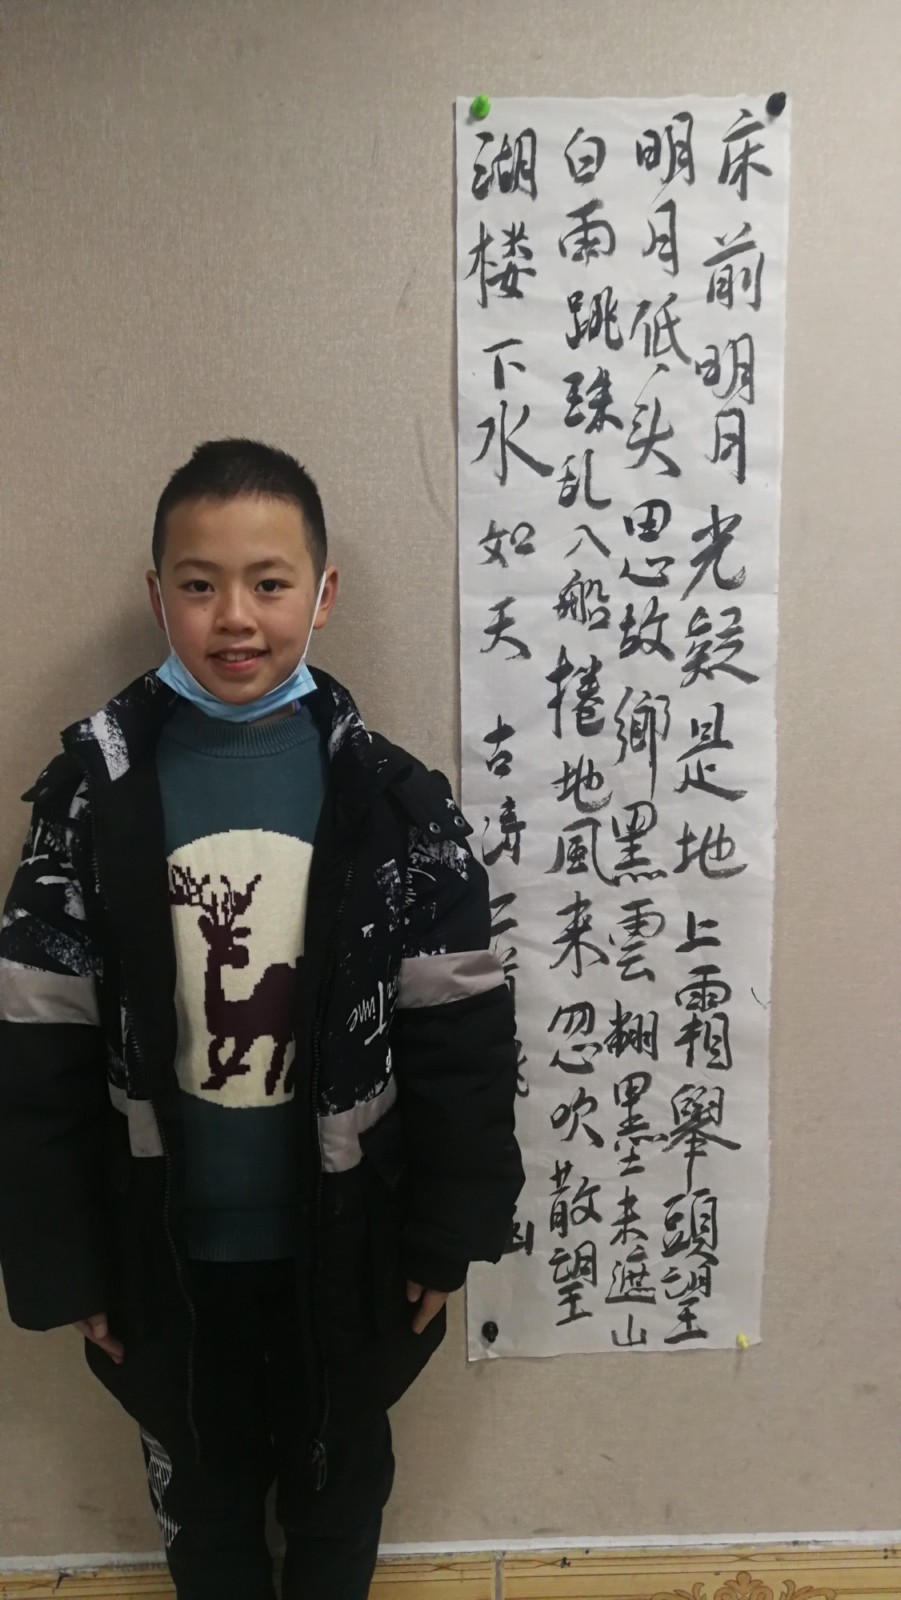 床前明月光疑是地上霜舉頭望
明月低头思故鄉黑雲翻墨未遮山
白雨跳珠乱入船捲地風来忽吹散望
湖楼下水如天 古诗二首
Time